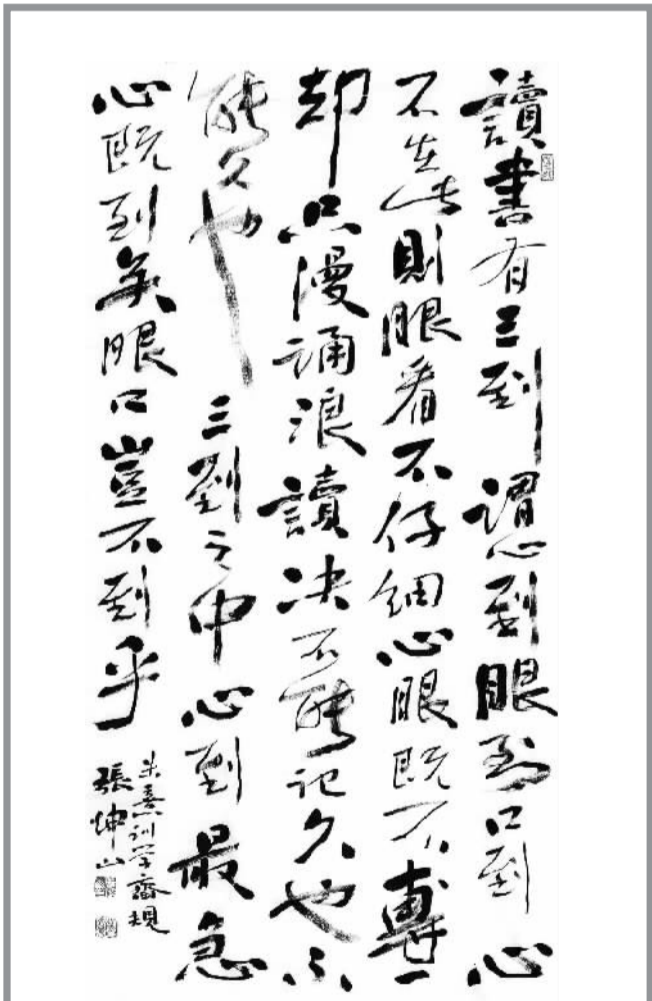 讀書有三到謂心到眼到口到心
不在此則眼看不仔細心眼既不專一
却只漫誦浪讀决不能記久也不
能久也三到之中心到最急
心既到矣眼口豈不到乎
朱熹訓学齋規
張坤山